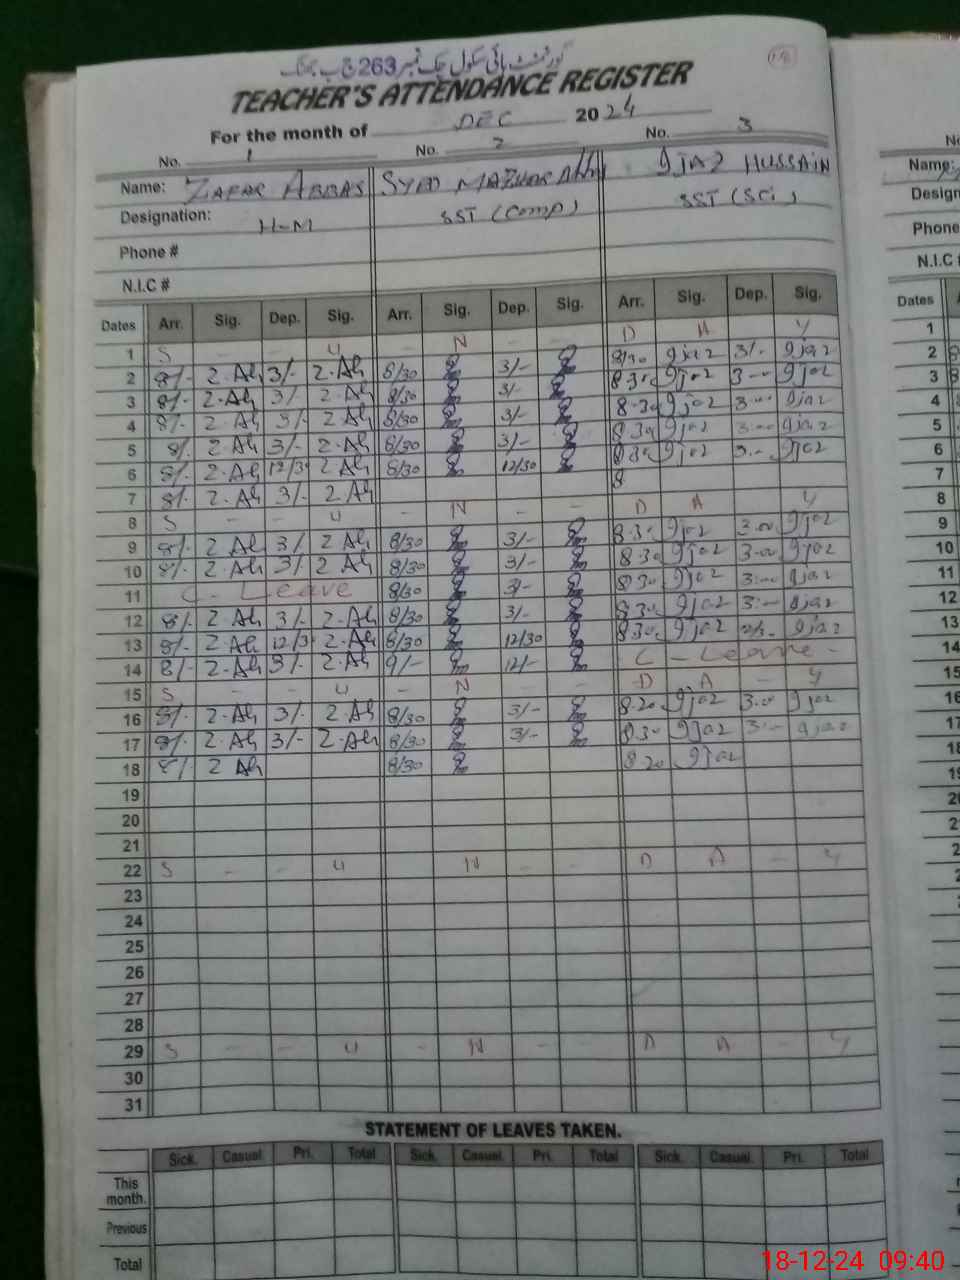 گورنمنٹ ہائی سکول چک نمبر 263 ج ب جھنگ
TEACHER'S ATTENDANCE REGISTER
For the month of DEC 2024
No. 1 No. 2 No. 3
Name: ZAFAR ABBAS SYED IJAZ HUSSAIN
Designation: H-M SST (Comp) SST (Sci)
Phone #
N.I.C #
Dates Arr. Sig. Dep. Sig. Arr. Sig. Dep. Sig. Arr. Sig. Dep. Sig.
1 S - - U - N - - D A - Y
2 8/- Z.Ab 3/- Z.Ab 8/30 3/- 8/30 Ijaz 3/- Ijaz
3 8/- Z.Ab 3/- Z.Ab 8/30 3/- 8.30 Ijaz 3-00 Ijaz
4 8/- Z.Ab 3/- Z.Ab 8/30 3/- 8.30 Ijaz 3-00 Ijaz
5 8/- Z.Ab 3/- Z.Ab 8/30 3/- 8.30 Ijaz 3-00 Ijaz
6 8/- Z.Ab 12/30 Z.Ab 8/30 12/30 8.30 Ijaz 3-- Ijaz
7 8/- Z.Ab 3/- Z.Ab 8
8 S - - U - N - - D A Y
9 8/- Z.Ab 3/- Z.Ab 8/30 3/- 8.30 Ijaz 3.00 Ijaz
10 8/- Z.Ab 3/- Z.Ab 8/30 3/- 8.30 Ijaz 3-00 Ijaz
11 C - Leave 8/30 3/- 8.30 Ijaz 3-00 Ijaz
12 8/- Z.Ab 3/- Z.Ab 8/30 3/- 8.30 Ijaz 3-- Ijaz
13 8/- Z.Ab 12/30 Z.Ab 8/30 12/30 8.30 Ijaz Ijaz
14 8/- Z.Ab 3/- Z.Ab 9/- 12/- C - Leave -
15 S - - U - N - - D A - Y
16 8/- Z.Ab 3/- Z.Ab 8/30 3/- 8.20 Ijaz 3.00 Ijaz
17 8/- Z.Ab 3/- Z.Ab 8/30 3/- 8.30 Ijaz 3-- Ijaz
18 8/- Z.Ab 8/30 8.20 Ijaz
19
20
21
22 S - - U - N - - D A - Y
23
24
25
26
27
28
29 S - - U - N - - D A - Y
30
31
STATEMENT OF LEAVES TAKEN.
Sick. Casual. Pri. Total Sick. Casual. Pri. Total Sick. Casual. Pri. Total
This month.
Previous
Total
No
Name:
Design
Phone
N.I.C #
Dates
1
2
3
4
5
6
7
8
9
10
11
12
13
14
15
16
17
18
19
18-12-24 09:40